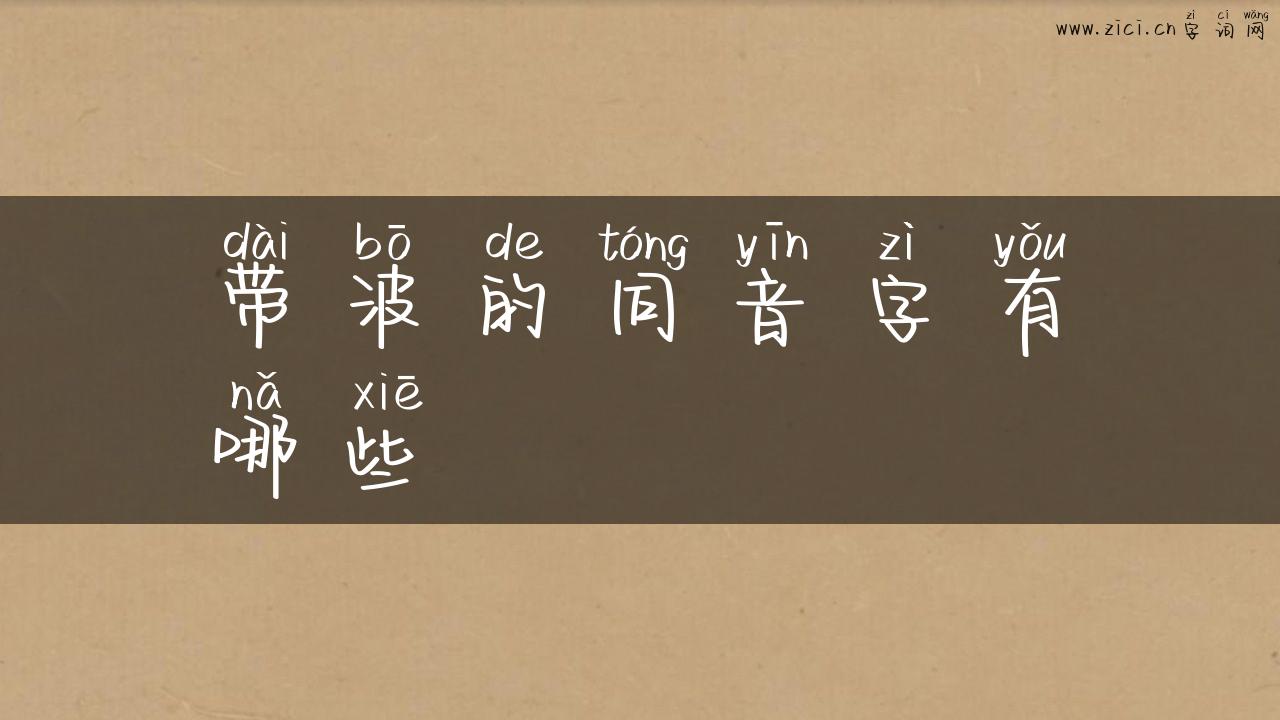 zì cí wǎng
www.zici.cn字词网
dài bō de tóng yīn zì yǒu
带波的同音字有
nǎ xiē
哪些